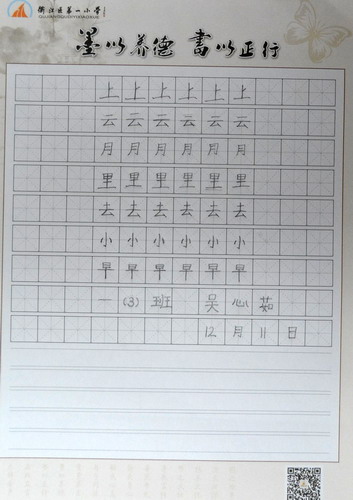 衢江区第一小学
QUJIANGQUDIYIXIAOXUE
墨以养德 书以正行
上上上上上上
云云云云云云
月月月月月月
里里里里里里
去去去去去去
小小小小小小
早早早早早早
一(3)班 吴心茹
12月11日